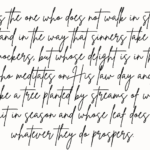 s the one who does not walk in st
and in the way that sinners take
mockers, but whose delight is in th
ho meditates on His law day and
be a tree planted by streams of w
uit in season and whose leaf does
whatever they do prospers.